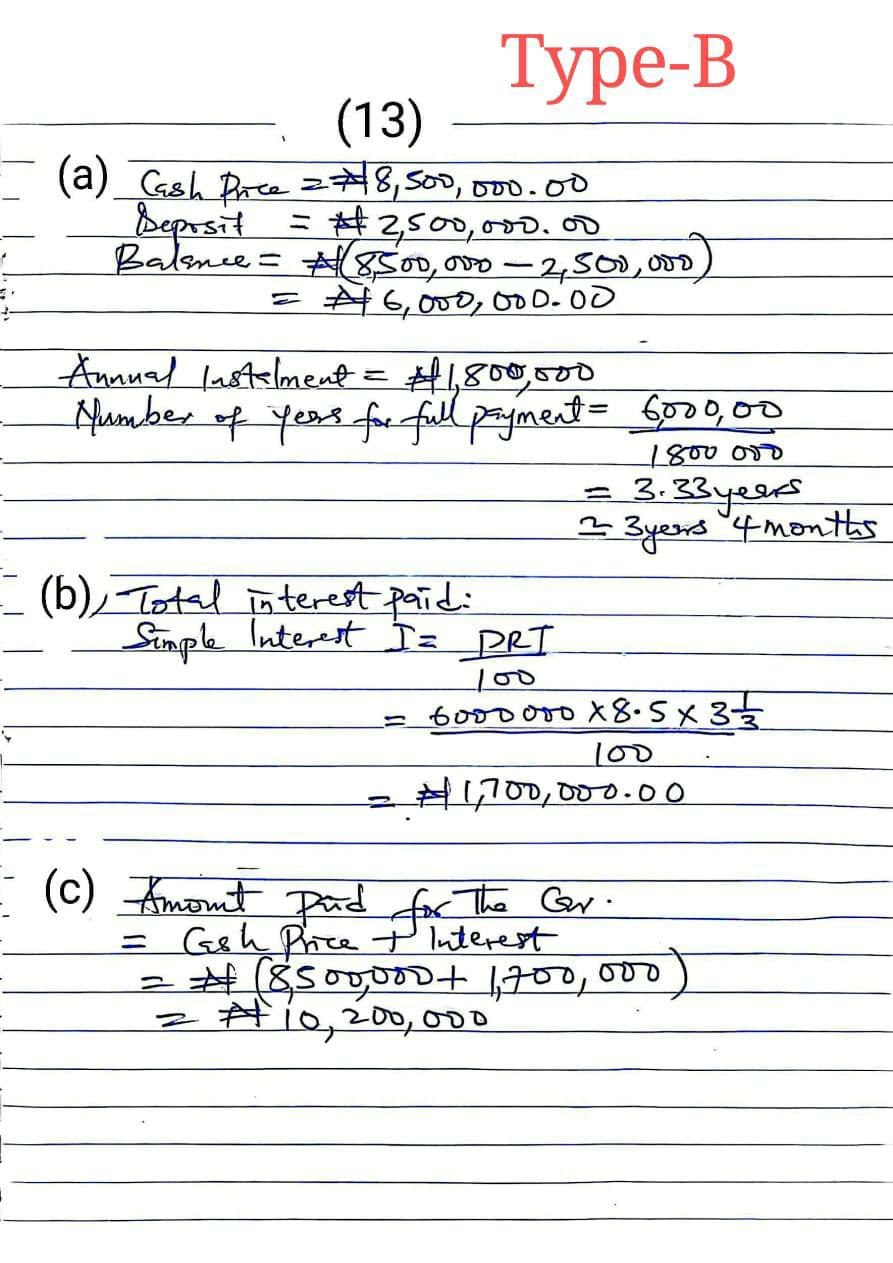 Type-B
(13)
(a) Cash Price = ₦8,500,000.00
Deposit = ₦2,500,000.00
Balance = ₦(8,500,000 - 2,500,000)
= ₦6,000,000.00
Annual Instalment = ₦1,800,000
Number of years for full payment = 6,000,00
1800 000
= 3.33 years
≃ 3years 4months
(b), Total interest paid:
Simple Interest I = PRT
100
= 6000 000 × 8.5 × 3 1/3
100
= ₦1,700,000.00
(c) Amount Paid for The Car.
= Cash Price + Interest
= ₦(8,500,000 + 1,700,000)
= ₦10,200,000